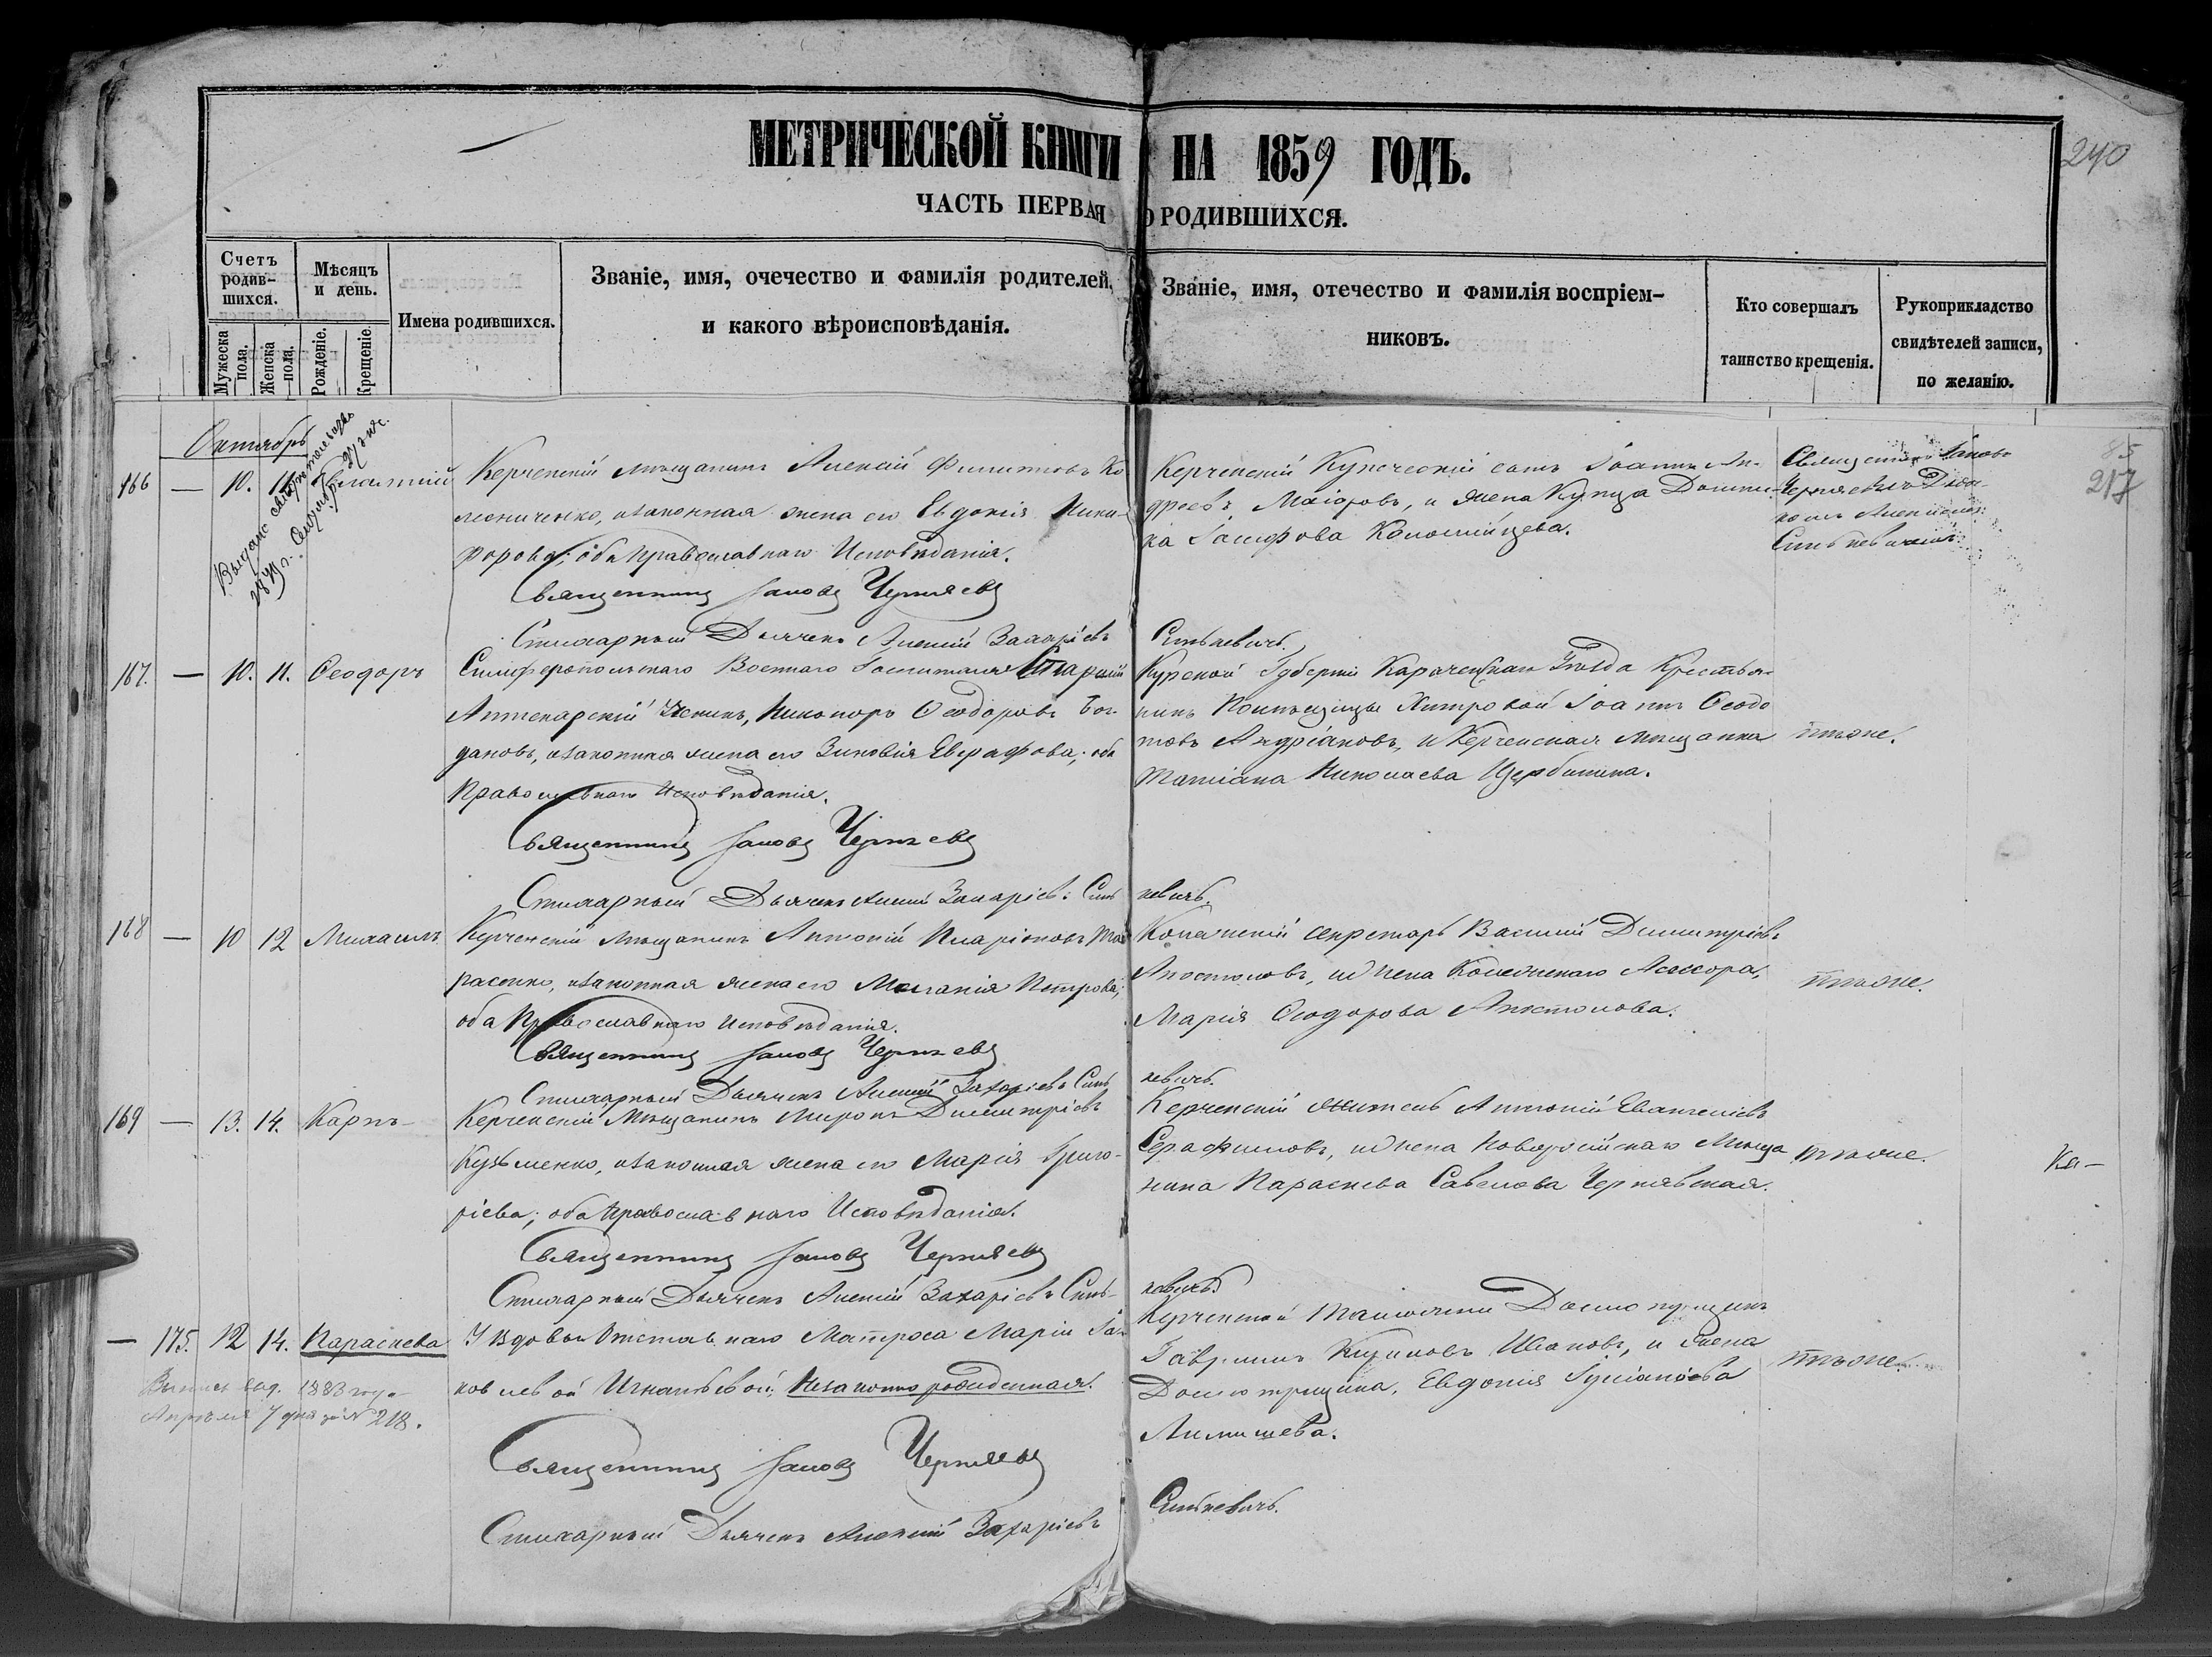 МЕТРИЧЕСКОЙ КНИГИ НА 1859 ГОДЪ.
240
ЧАСТЬ ПЕРВАЯ О РОДИВШИХСЯ.
Счетъ родив-
шихся.
Мужеска пола.
Женска пола.
Мѣсяцъ и день.
Рожденіе.
Крещеніе.
Имена родившихся.
Званіе, имя, очечество и фамилія родителей,
и какого вѣроисповѣданія.
Званіе, имя, отечество и фамилія воспріем-
никовъ.
Кто совершалъ
таинство крещенія.
Рукоприкладство
свидѣтелей записи,
по желанію.
Октябрь
85
217
166 — 10. 11.
Керченскій мѣщанинъ Алексій Филиповъ Ко
лесниченко, изаконная жена его Евдокія Ники-
форова; оба Православнаго Исповѣданія.
Священникъ Іаковъ Черняевъ
Стихарный Дьячекъ Алексій Захаріевъ
Керченскій Купеческій сынъ Іоаннъ Ан-
дреевъ Маіоровъ, и жена Купца
ка Іосифова Коломійцева.
Синькевичъ.
Священникъ Іаковъ
Черняевъ съ Дьяч-
комъ Алексіемъ
Синькевичемъ.
167. — 10. 11. Ѳеодоръ
Симферопольскаго Военнаго Госпиталя Старшій
Аптекарскій Ученикъ, Никаноръ Ѳеодоровъ Бог-
дановъ, изаконная жена его Зиновія Евграфова; оба
Православнаго Исповѣданія.
Священникъ Іаковъ Черняевъ
Стихарный Дьячекъ Алексій Захаріевъ Синь
Курской Губерніи Уѣзда Крестья-
нинъ Помѣщицы Хитровой Іоаннъ Ѳеодо
товъ Андріановъ, и Керченская мѣщанка
Татіана Николаева Щербинина.
кевичъ.
тѣже.
168 — 10 12 Михаилъ
Керченскій мѣщанинъ Антоній Иларіоновъ Та
расенко, изаконная жена его Меланія Петрова;
оба Православнаго исповѣданія.
Священникъ Іаковъ Черняевъ
Стихарный Дьячекъ Алексій Захаріевъ Синь
секретарь Василій Димитріевъ
Апостоловъ, иЖена Колежскаго Асессора,
Марія Ѳеодорова Апостолова.
кевичъ.
тѣже.
169 — 13. 14. Карпъ
Керченскій Мѣщанинъ Миронъ Димитріевъ
Кузьменко, изаконная жена его Марія Григо-
ріева; оба Православнаго Исповѣданія.
Священникъ Іаковъ Черняевъ
Стихарный Дьячекъ Алексій Захаріевъ Синь-
Керченскій житель Антоній Евангеліевъ
Серафимовъ, иЖена Новороссійскаго Мѣща
нина Параскева Савелова Чернявская.
кевичъ
тѣже.
Ка-
— 175. 12 14. Параскева
Выпись выд. 1883 году
Апрѣля 7 дня за № 218.
У вдовы Отставнаго Матроса Маріи Іа-
ковлевой Игнатьевой; Незаконно рожденная.
Священникъ Іаковъ Черняевъ
Стихарный Дьячекъ Алексій Захаріевъ
Керченской Таможни Досмотрщикъ
Гавріилъ Ивановъ, и жена
Досмотрщика, Евдокія
Синькевичъ.
тѣже.